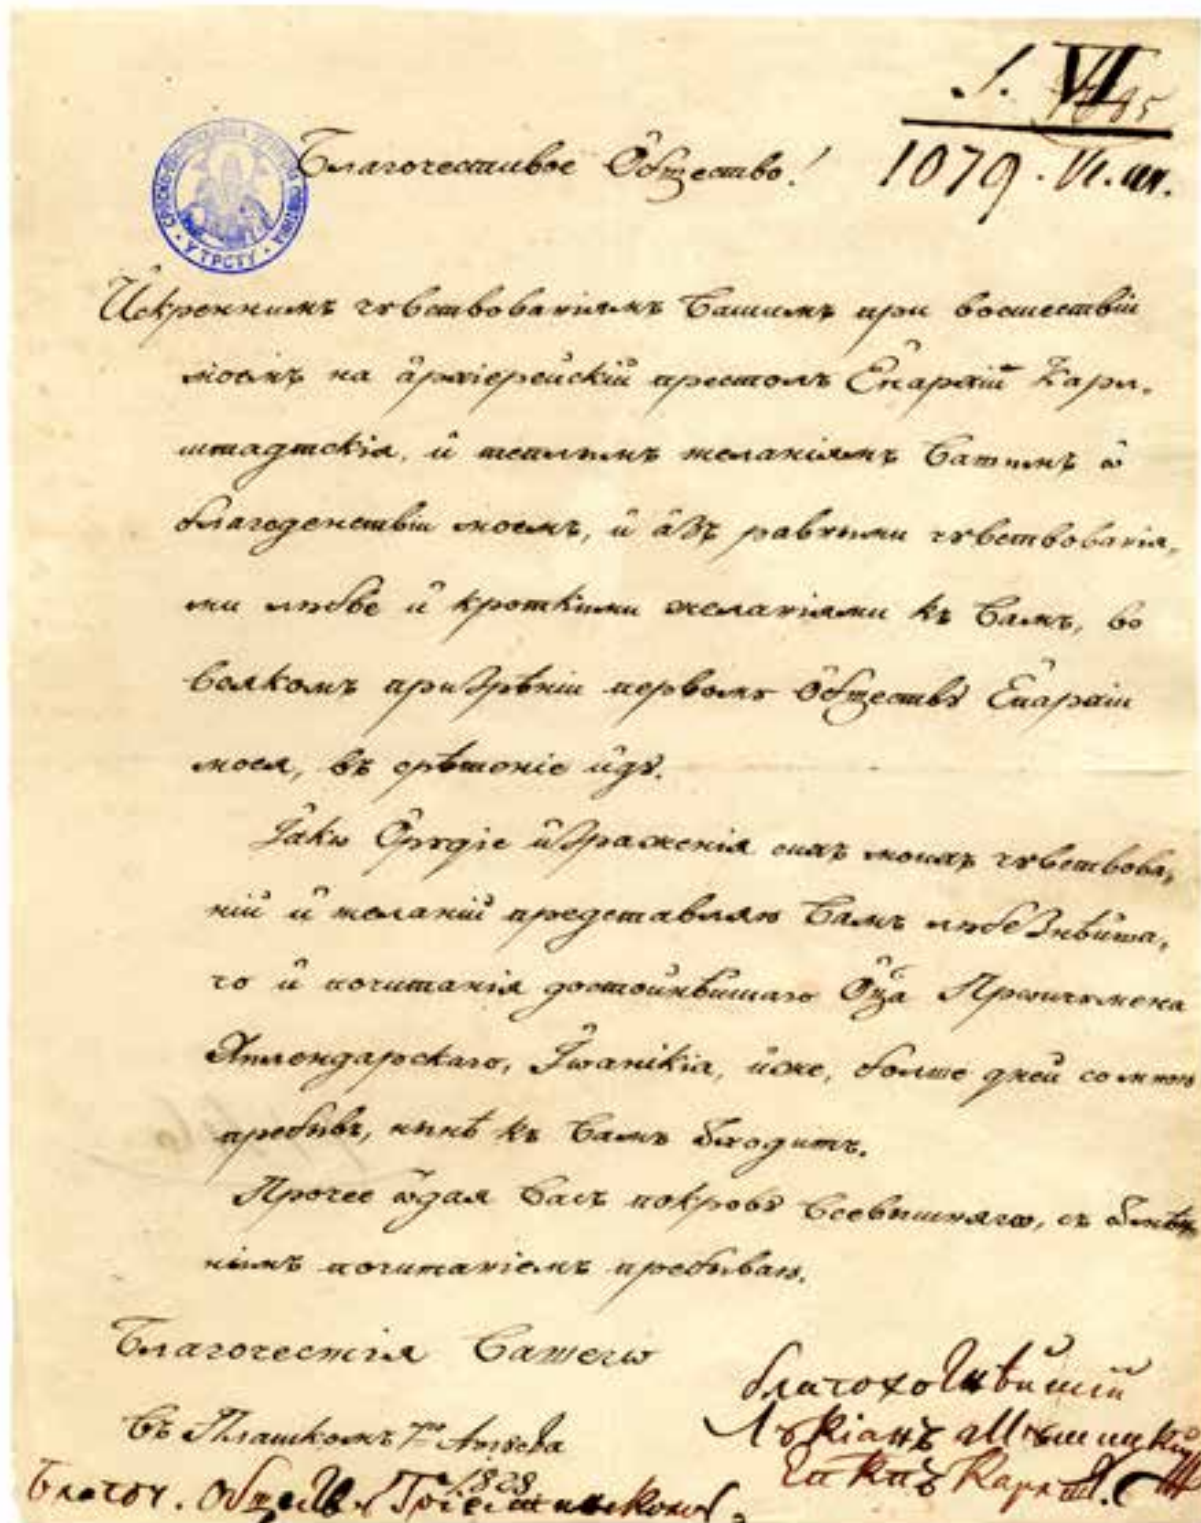 1079. VI.
Благочестивое Ѻбщество!
У ТРСТУ
Искреннимъ чꙋвствованіямъ Вашимъ при восшествіи
моемъ на архіерейскій престолъ Епархіи Карл-
штадтскія, и теплымъ желаніямъ Вашимъ ѡ
благоденствіи моемъ, и азъ равными чꙋвствованія-
ми любве и кроткими желаніями къ Вамъ, во
всякомъ призрѣніи первомъ Ѻбществꙋ Епархіи
моея, въ срѣтеніе идꙋ.
Якѡ Ѻрꙋдіе израженія сихъ моихъ чꙋвствова-
ній и желаній представляю Вамъ любезнѣйша-
го и почитанія достойнѣйшаго Ѻц҃а Проигꙋмена
Хилендарскаго, Іѡаникіа, иже, болше дней со мною
пребывъ, нынѣ къ Вамъ ѿходитъ.
Прочее ѿдая Васъ покровꙋ Всевышнягѡ, съ
нымъ почитаніемъ пребываю.
Благочестія Вашегѡ
Въ Плашкомъ 7
1828
благохотнѣйшій
Лꙋкіанъ Мꙋшицкій
Еп҃кпъ Карлшт.
Благоч. Ѻбществꙋ Тріестинскомꙋ.